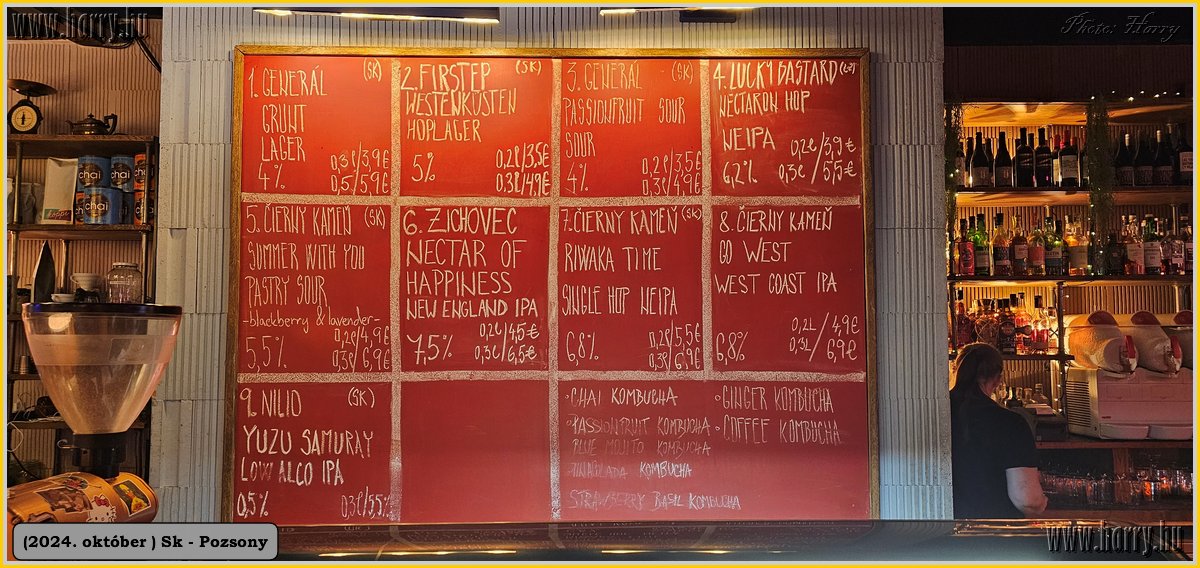 www.horry.hu
Photo: Horry
1. GENERÁL (SK)
GRUNT
LAGER
4% 0,3ℓ/3,9€
0,5/5,9€
2. FIRSTEP (SK)
WESTENKÜSTEN
HOPLAGER
5% 0.2ℓ/3,5€
0.3ℓ/4,9€
3. GENERÁL (SK)
PASSIONFRUIT SOUR
SOUR
4% 0,2ℓ/3,5€
0,3ℓ/4,9€
4. LUCKY BASTARD (CZ)
NECTARON HOP
NEIPA
6,2% 0,2ℓ/3,9€
0,3ℓ/5,5€
5. ČIERNY KAMEŇ (SK)
SUMMER WITH YOU
PASTRY SOUR
-blackberry & lavender-
5,5% 0,2ℓ/4,9€
0,3ℓ/6,9€
6. ZICHOVEC
NECTAR OF
HAPPINESS
NEW ENGLAND IPA
7,5% 0,2ℓ/4,5€
0,3ℓ/6,5€
7. ČIERNY KAMEŇ (SK)
RIWAKA TIME
SINGLE HOP NEIPA
6,8% 0,2ℓ/5,5€
0,3ℓ/6,9€
8. ČIERNY KAMEŇ
GO WEST
WEST COAST IPA
6,8% 0,2L/4,9€
0,3L/6,9€
9. NILIO (SK)
YUZU SAMURAY
LOW ALCO IPA
0,5% 0,3ℓ/5,5€
◦CHAI KOMBUCHA
◦PASSIONFRUIT KOMBUCHA
BLUE MOJITO KOMBUCHA
KOMBUCHA
STRAWBERRY BASIL KOMBUCHA
◦GINGER KOMBUCHA
◦COFFEE KOMBUCHA
chai
chai
chai
(2024. október ) Sk - Pozsony
www.horry.hu